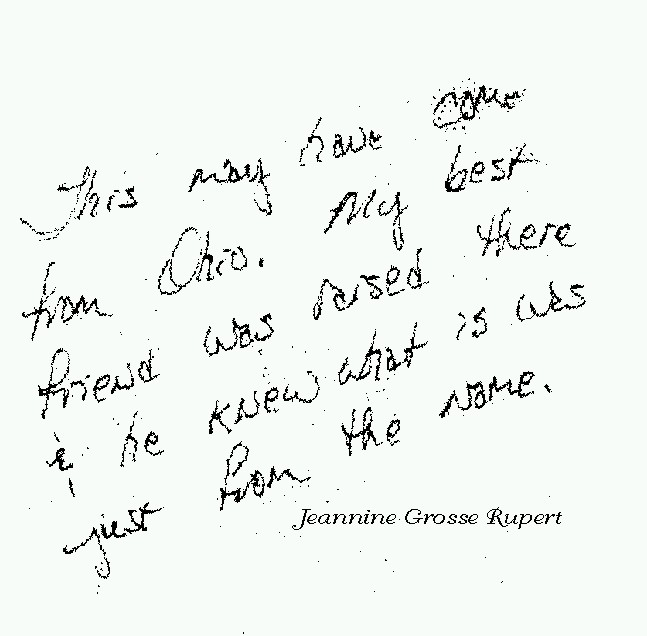 This may have come
from Ohio. My best
friend was raised there
& he knew what is was
just from the name.
Jeannine Grosse Rupert